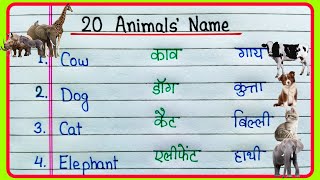 20 Animals' Name
1. Cow काव गाय
2. Dog डॉग कुत्ता
3. Cat कैट बिल्ली
4. Elephant एलीफेंट हाथी